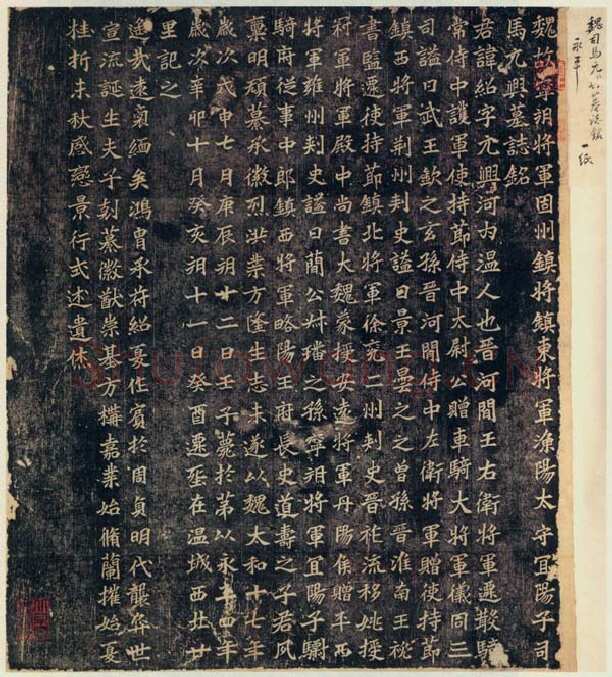 魏司馬元興墓誌銘 一紙
永平
魏故寧朔將軍固州鎮將鎮東將軍漁陽太守宜陽子司
馬元興墓誌銘
君諱紹字元興河内温人也晉河間王右衛將軍遷散騎
常侍中護軍使持節侍中太尉公贈車騎大將軍儀同三
司謚曰武王欽之玄孫晉河間侍中左衛將軍贈使持節
鎮西將軍荆州刾史謚曰景王曇之之曾孫晉淮南王祕
書監遷使持節鎮北將軍徐兖二州刾史晉祚流移姚授
冠軍將軍殿中尚書大魏蒙授安遠將軍丹陽侯贈平西
將軍雍州刾史謚曰簡公叔璠之孫寧朔將軍宜陽子驃
騎府從事中郎鎮西將軍略陽王府長史道壽之子君夙
稟明頑纂承徽烈洪業方隆生志未遂以魏太和十七年
歲次戊申七月庚辰朔十二日壬子薨於第以永平四年
歲次辛卯十月癸亥朔十一日癸酉遷塟在温城西北廿
里記之
遥哉遠裔緬矣鴻胄承符紹夏作賓於周貞明代襲弈世
宣流誕生夫子剋纂徽猷崇基方構嘉業始脩蘭摧始夏
桂折未秋感戀景行式述遺休